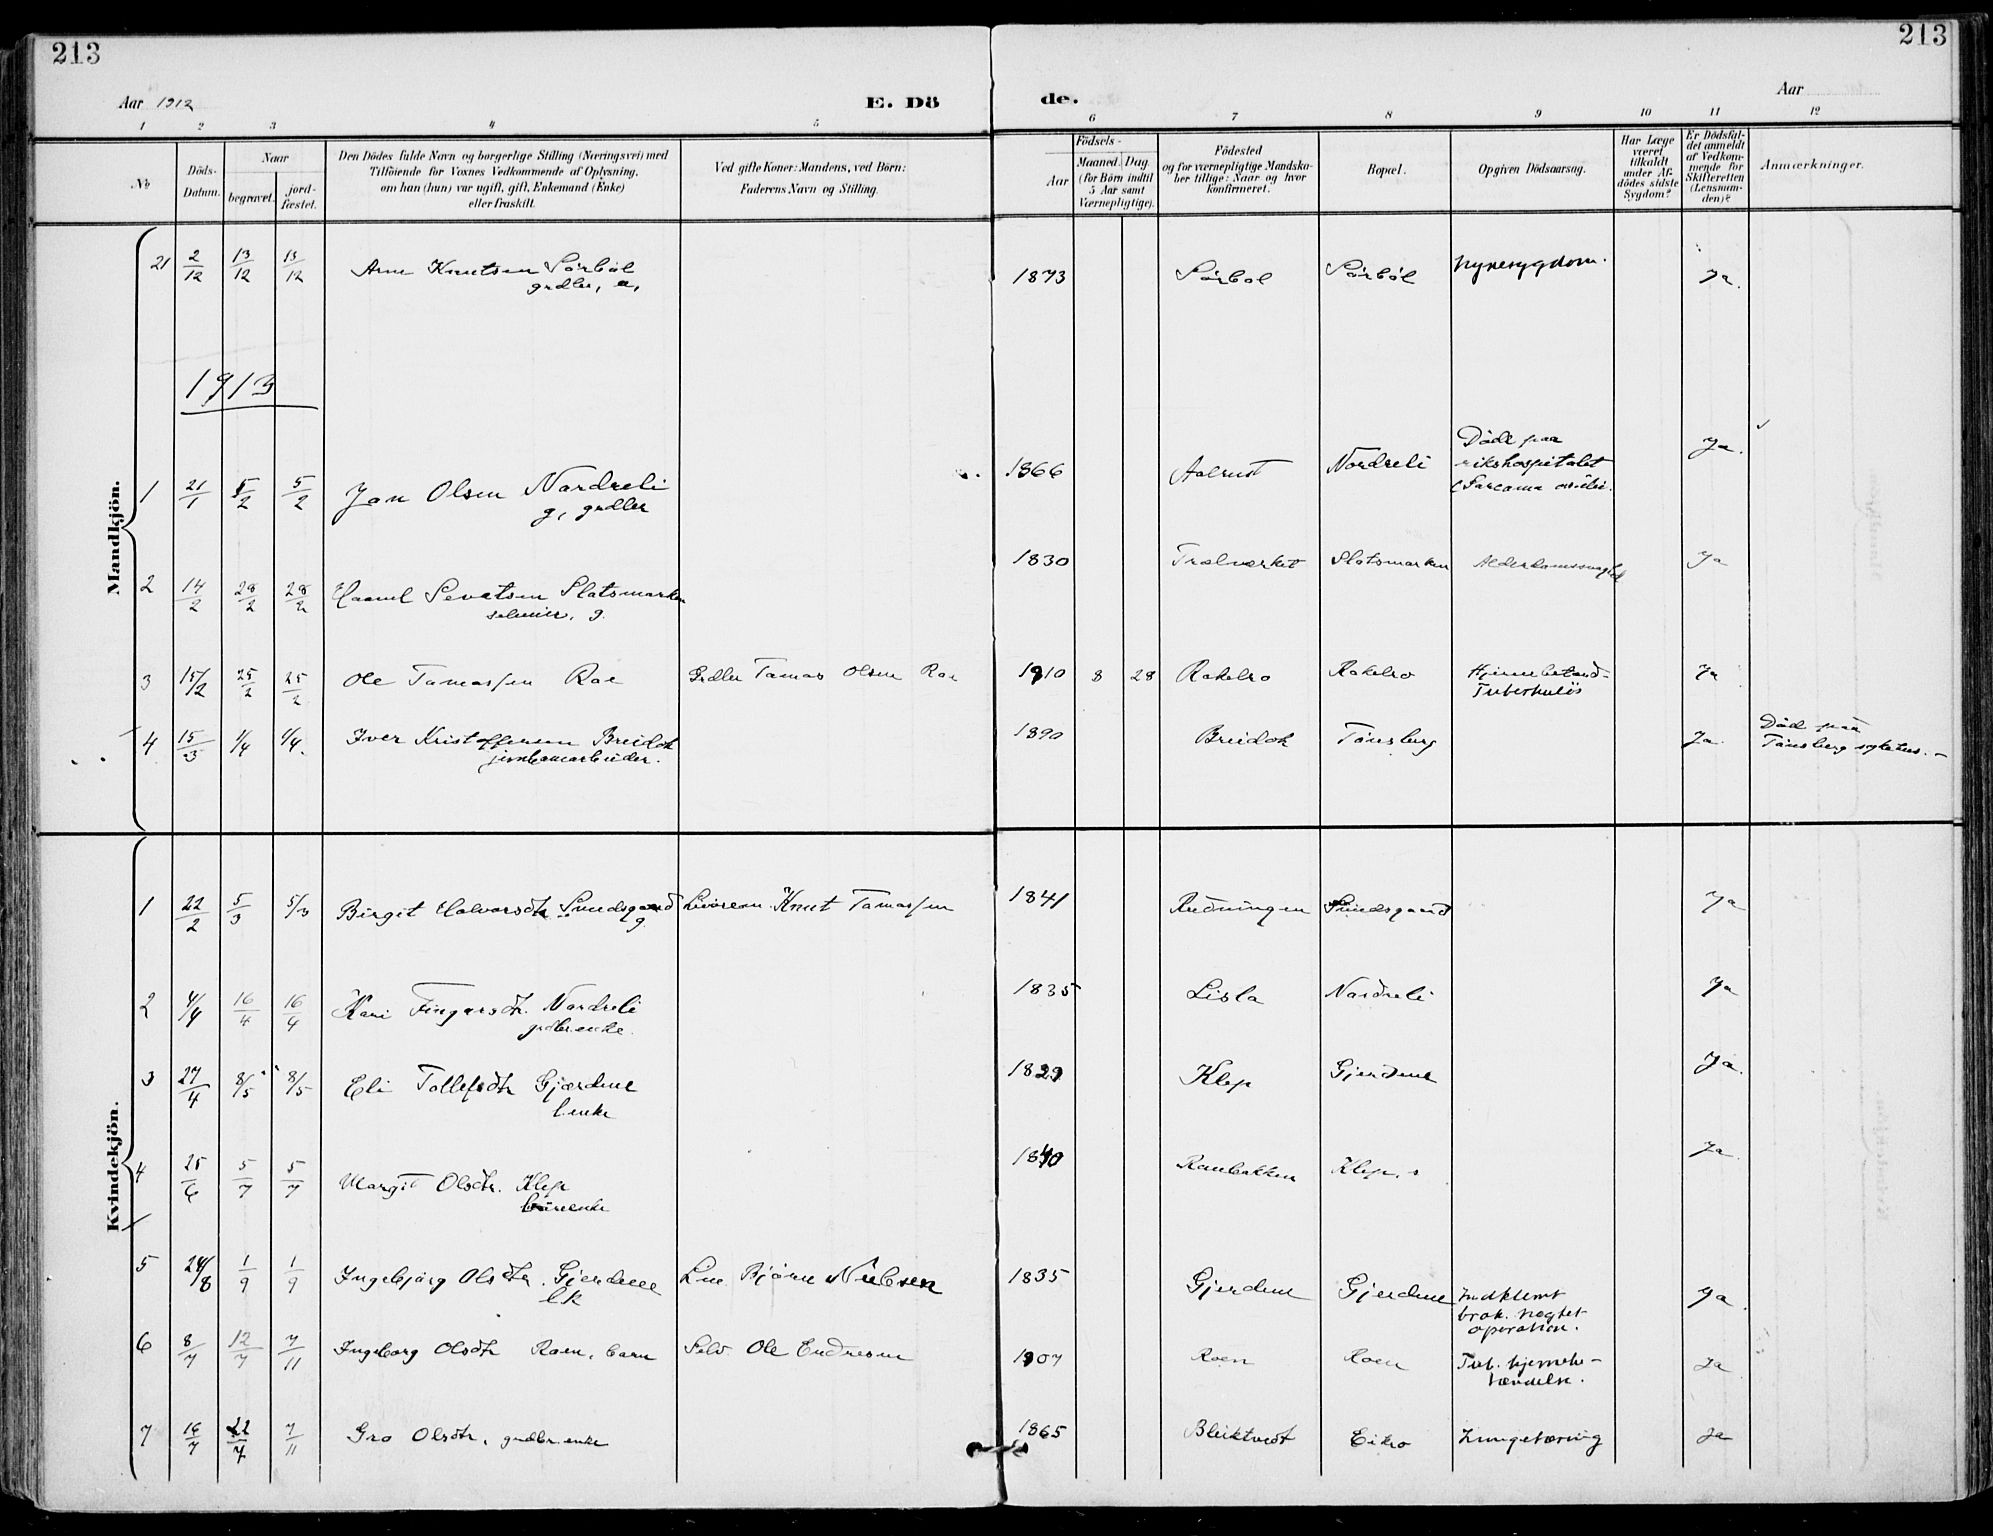 213
213
Aar 1912
E. Dö
de.
Aar
1 2 3 4 5 6 7 8 9 10 11 12
No
Döds-
Datum.
Naar
begravet.
jord-
fæstet.
Den Dödes fulde Navn og borgerlige Stilling (Næringsvei) med
Tilföiende for Voxnes Vedkommende af Oplysning,
om han (hun) var ugift, gift, Enkemand (Enke)
eller fraskilt.
Ved gifte Koner: Mandens, ved Börn:
Faderens Navn og Stilling.
Födsels-
Aar
Maaned. Dag.
(for Börn indtil
5 Aar samt
Værnepligtige).
Födested
og for værnepligtige Mandska-
ber tillige: Naar og hvor
konfirmeret.
Bopæl.
Opgiven Dödsaarsag.
Har Læge
været
tilkaldt
under Af-
dödes sidste
Sygdom?
Er Dödsfal-
det anmeldt
af Vedkom-
mende for
Skifteretten
(Lensman-
den)?
Anmærkninger.
Mandkjön.
21 2/12 13/12 13/12 Arne Knutsen Sörböl 1873 Sörbol Sörböl Nyresygdom. Ja.
grdbr, e,
1913
1 21/1 5/2 5/2 Jon Olsen Nordreli 1866 Aalrust Nordreli Döde paa Ja.
g, grdbr
rikshospitalet
(Sarcoma
2 14/2 28/2 28/2 Sevatsen Slatsmarken 1830 Tralværket Slatsmarken Alderdomssvaghet Ja
g.
3 15/2 25/2 25/2 Ole Tamassen Roe Grdbr Tamas Olsen Roe 1910 8 28 Rakelro Rakelro Hjernebetænd- Ja
Tuberkulös
4 15/3 1/4 1/4. Iver Kristoffersen Breidok 1890 Breidok Tönsberg Ja. Död paa
jernbanearbeider.
Tönsberg sykehus. -
Kvindekjön.
1 22/2 5/3 5/3 Birgit Halvorsdtr Sundsgaard Livörem. Knut Tamassen 1841 Redningen Sundsgaard Ja
g
2 4/4 16/4 16/4 Kari Fingarsdtr. Nordreli 1835 Lisla Nordreli Ja
grdbr.enke.
3 27/4 8/5 8/5 Eli Tollefsdtr Gjærdene 1829 Klep Gjerdene Ja.
l.enke
4 25/6 5/7 5/7 Margit Olsdtr. Klep 1840 Raubakken Klep. Ja.
5 24/8 1/9 1/9 Ingebjörg Olsdtr. Gjerdene Björn Nielsen 1835 Gjerdene Gjerdene Indklemt Ja.
lk
brok. Negtet
operation.
6 8/7 12/7 7/11 Ingeborg Olsdtr Roen, barn Selv. Ole Endresen 1907 Roen Roen Tub. hjernebe- Ja
tændelse.
7 16/7 22/7 7/11 Gro Olsdtr, grdbr.enke 1865 Bleiktvedt Eikro Lungetæring Ja